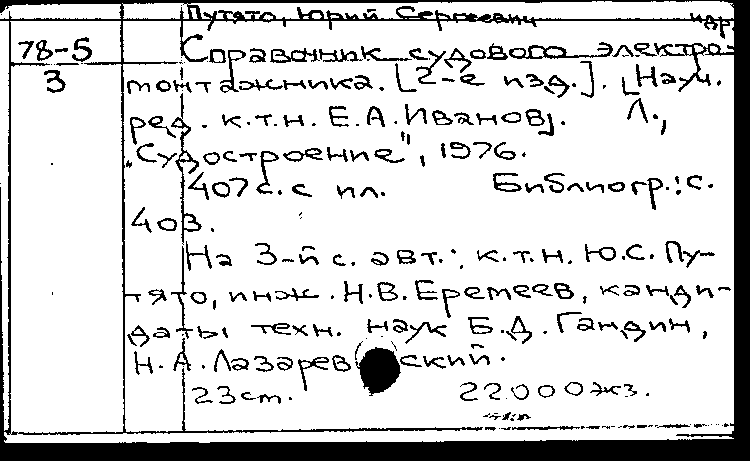 Путято, Юрий Сергеевич и др.
78-5 Справочник судового электро-
3 монтажника. [2-е изд.]. [Науч.
ред. к.т.н. Е.А.Иванов]. Л.,
„Судостроение", 1976.
407с. с ил. Библиогр.: с.
403.
На 3-й с. авт.: к.т.н. Ю.С. Пу-
тято, инж. Н.В.Еремеев, канди-
даты техн. наук Б.Д.Гандин,
Н.А.Лазаревский.
23cm. 22000экз.